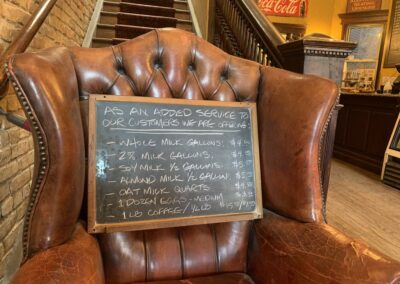 Coca-Cola
AS AN ADDED SERVICE TO
OUR CUSTOMERS WE ARE OFFERING:
- WHOLE MILK GALLONS,
- 2% MILK GALLONS,
- SOY MILK ½ GALLONS -
- ALMOND MILK ½ GALLON,
- OAT MILK QUARTS
- 1 DOZEN EGGS - MEDIUM
- 1 LB COFFEE / ½ LB